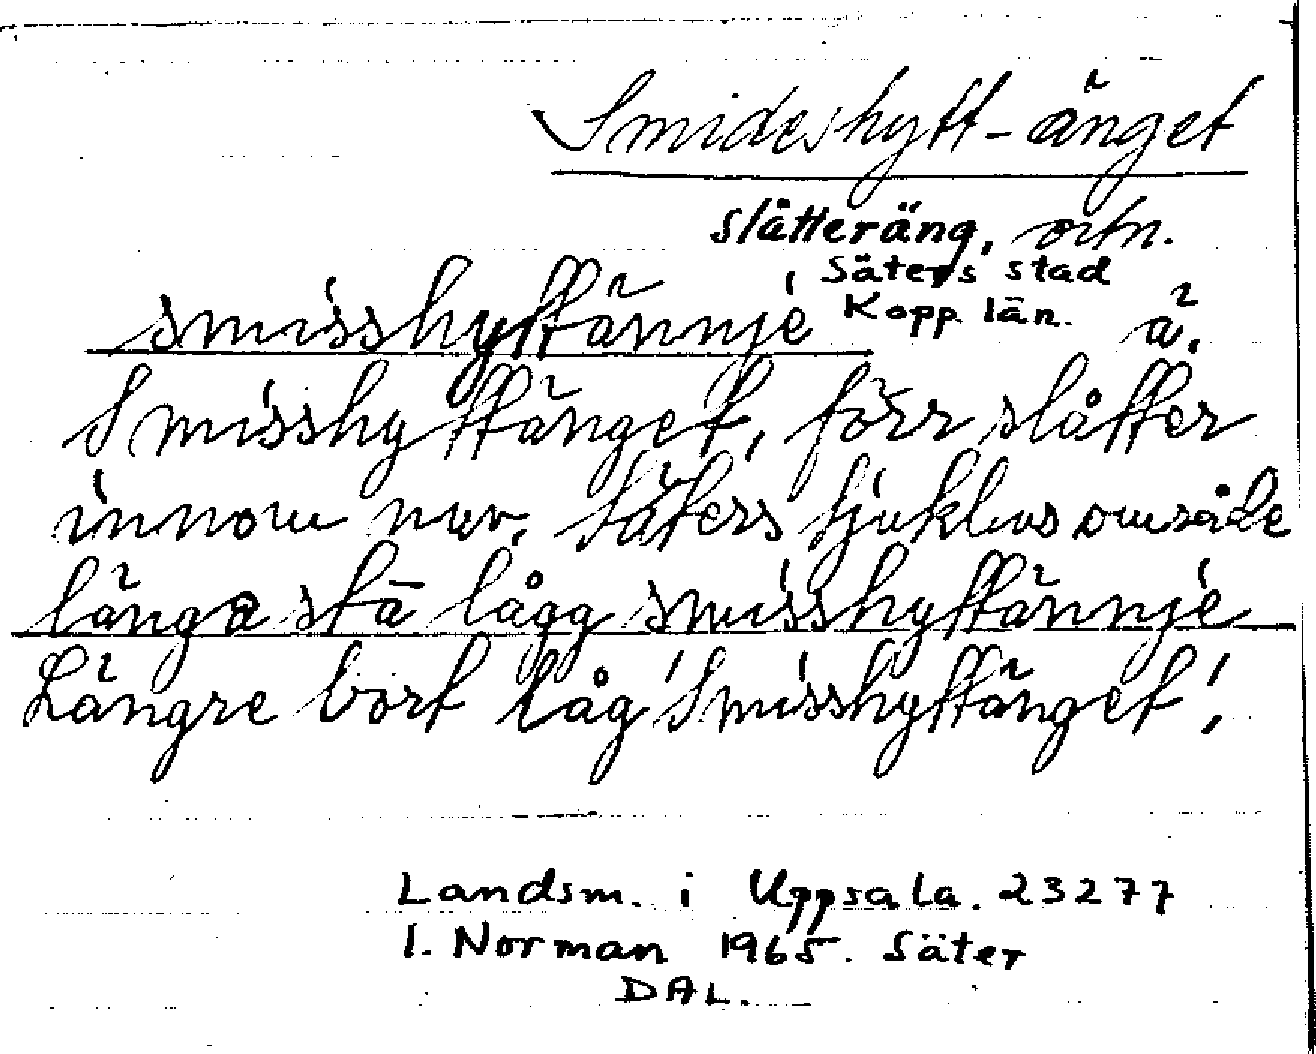 Smideshytt-änget
slätteräng, ortn.
Säters stad
Kopp. län.
smisshyttännjè ä.
Smisshyttänget, förr slåtter
innom nuv. Säters sjukhus område
länga stä lågg smisshyttännjè
Längre bort låg 'Smisshyttänget'.
Landsm. i Uppsala. 23277
I. Norman 1965. Säter
DAL.